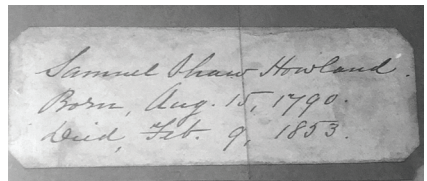 Samuel Shaw Howland.
Born, Aug. 15, 1790.
Died, Feb. 9, 1853.